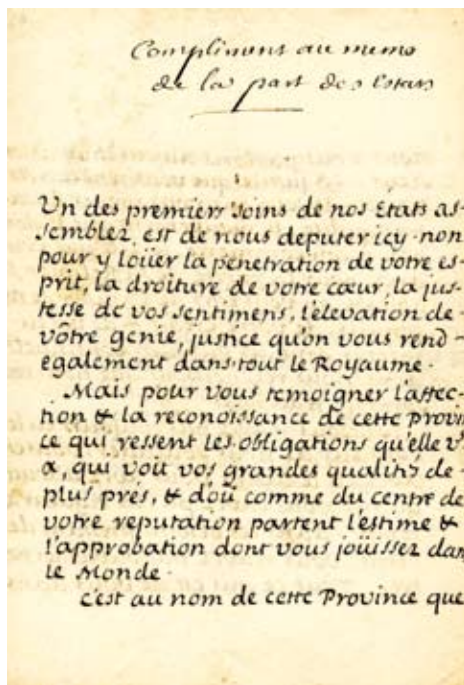 Compliment au meme
de la part des Estats
Un des premiers soins de nos Etats as-
semblez est de nous deputer icy non
pour y loüer la penetration de votre es-
prit, la droiture de votre cœur, la jus-
tesse de vos sentimens, l'elevation de
vôtre genie, justice qu'on vous rend
egalement dans tout le Royaume.
Mais pour vous temoigner l'affec-
tion & la reconoissance de cette Provin
ce qui ressent les obligations qu'elle v
a, qui voit vos grandes qualités de
plus prés, & d'où comme du centre de
votre reputation partent l'estime &
l'approbation dont vous joüissez dan
le Monde.
c'est au nom de cette Province que